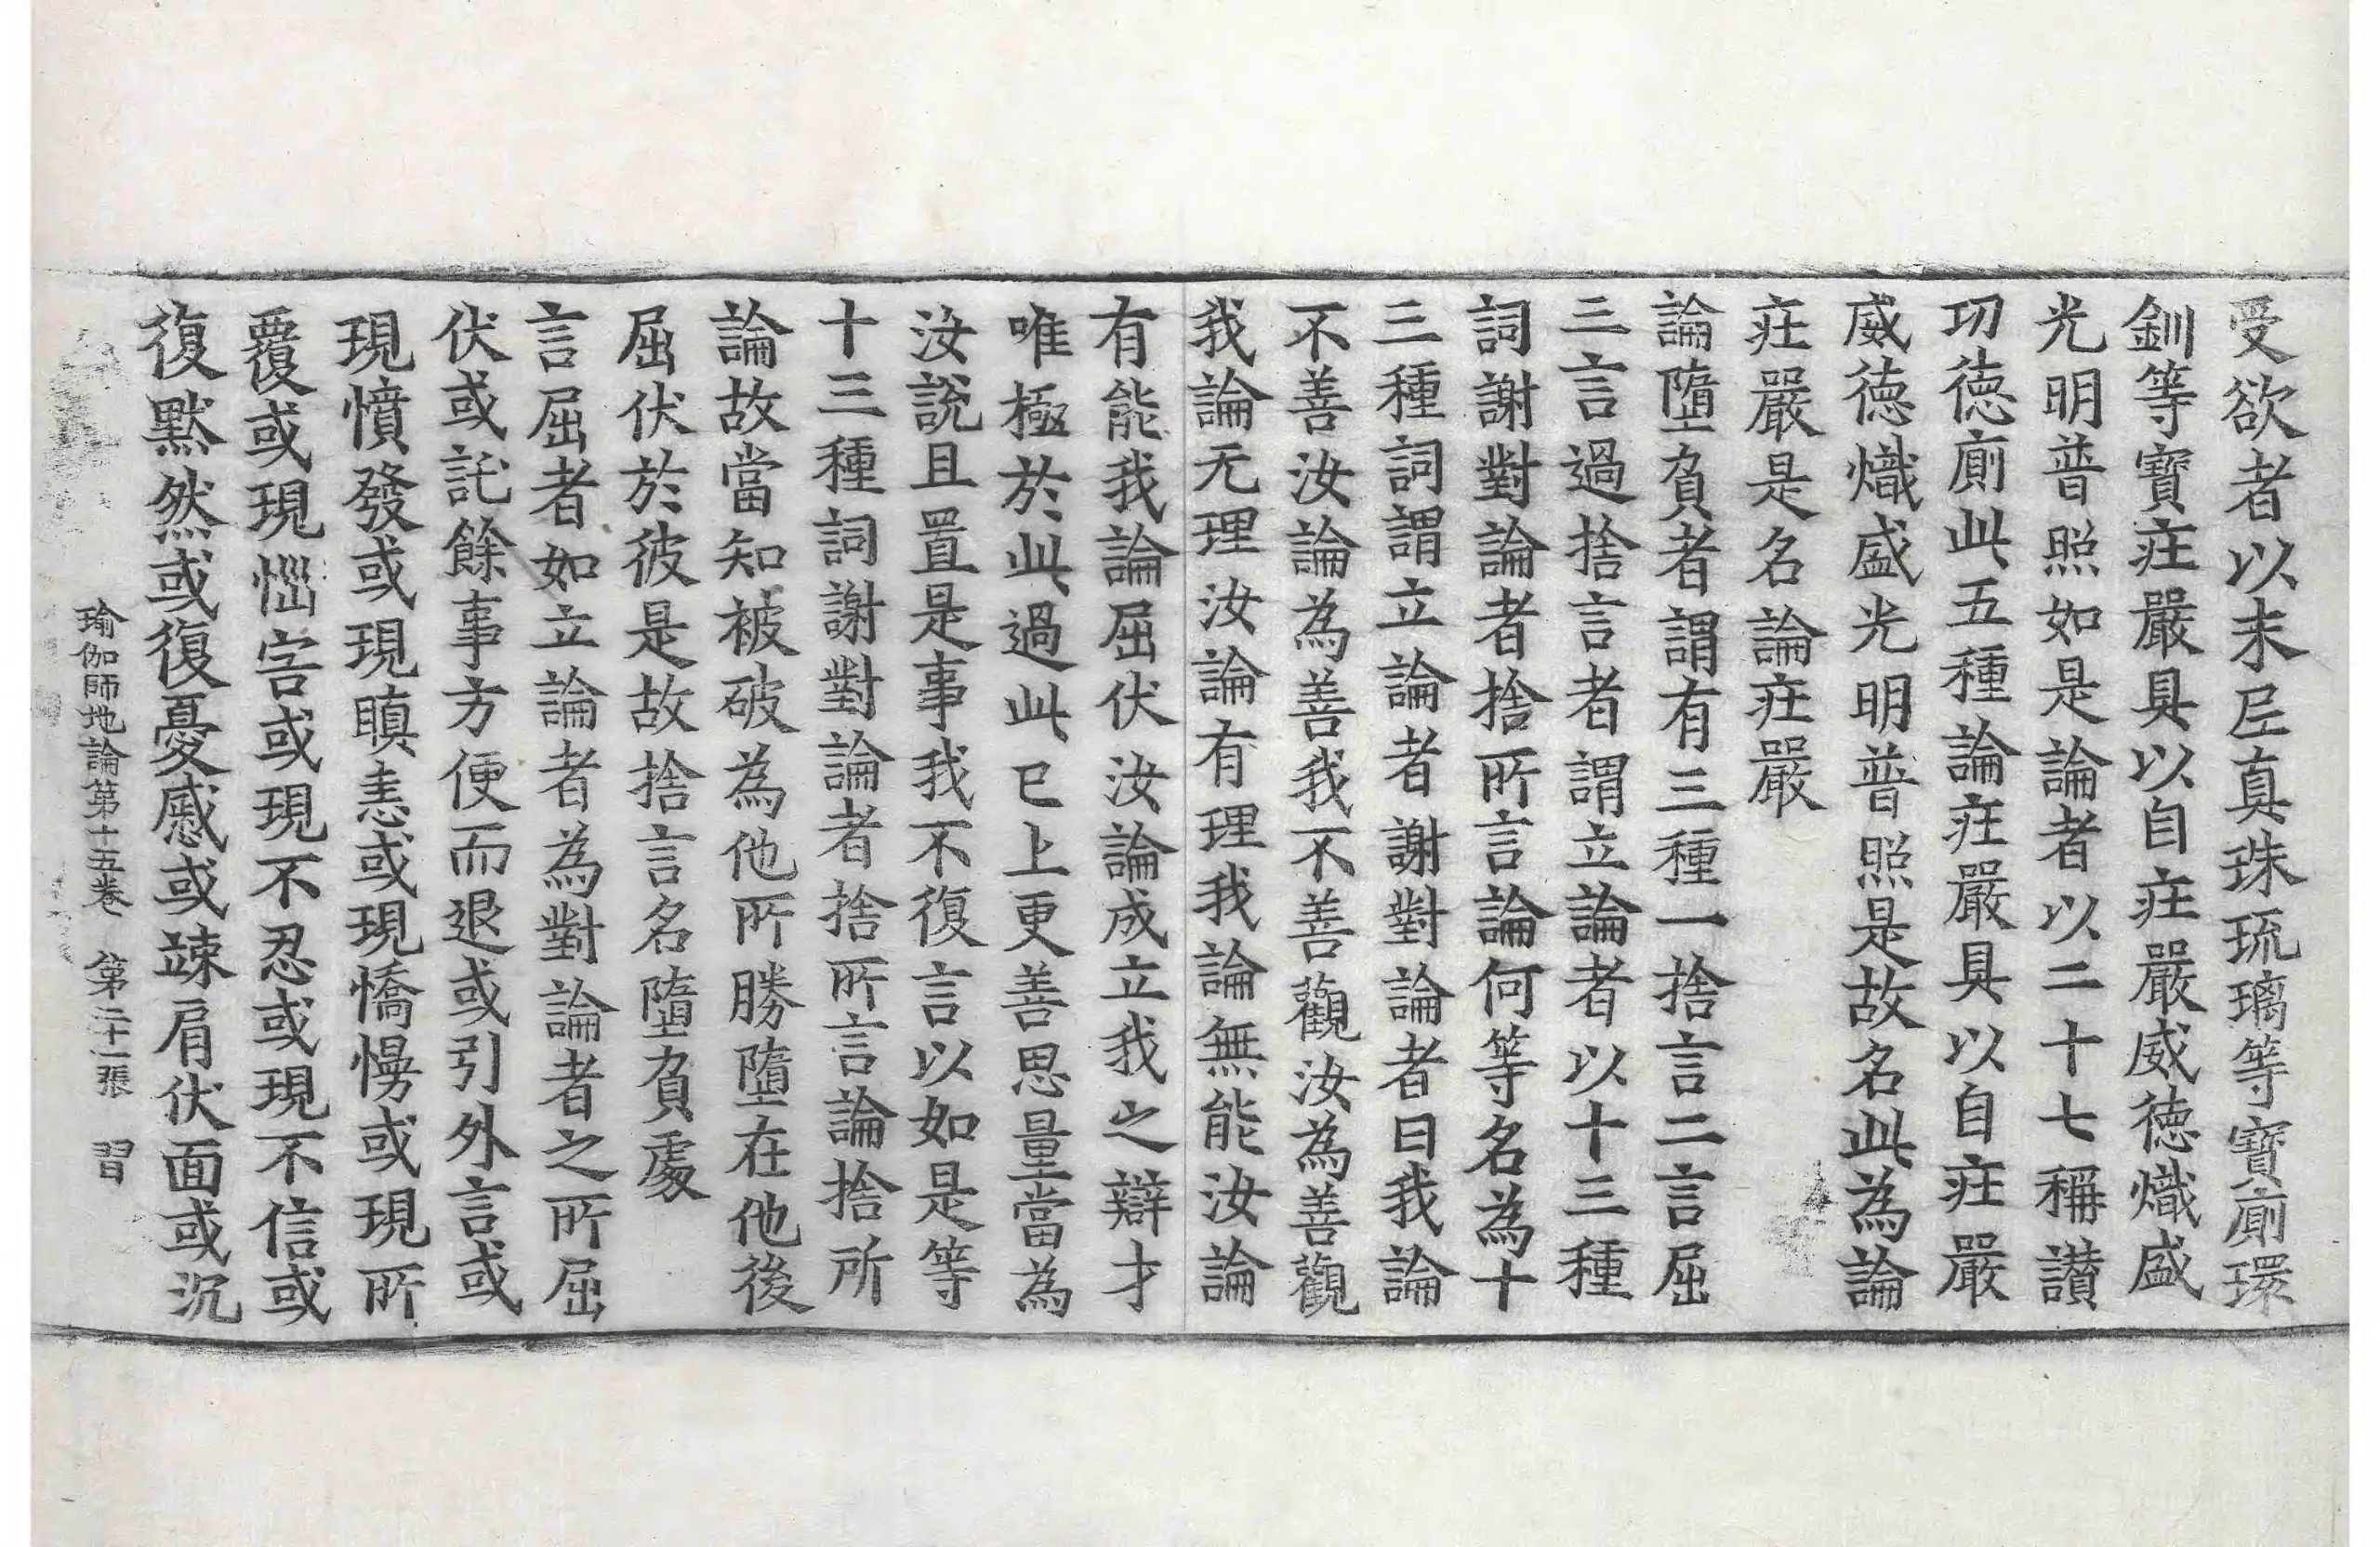 受欲者以末尼真珠琉璃等寶廁環
釧等寶莊嚴具以自莊嚴威德熾盛
光明普照如是論者以二十七稱讃
功德廁此五種論莊嚴具以自莊嚴
威德熾盛光明普照是故名此為論
莊嚴是名論莊嚴
論墮負者謂有三種一捨言二言屈
三言過捨言者謂立論者以十三種
詞謝對論者捨所言論何等名為十
三種詞謂立論者謝對論者曰我論
不善汝論為善我不善觀汝為善觀
我論无理汝論有理我論無能汝論
有能我論屈伏汝論成立我之辯才
唯極於此過此已上更善思量當為
汝說且置是事我不復言以如是等
十三種詞謝對論者捨所言論捨所
論故當知被破為他所勝墮在他後
屈伏於彼是故捨言名墮負處
言屈者如立論者為對論者之所屈
伏或託餘事方便而退或引外言或
現憤發或現瞋恚或現憍慢或現所
覆或現惱害或現不忍或現不信或
復默然或復憂慼或竦肩伏面或沉
瑜伽師地論第十五卷 第二十一張 習